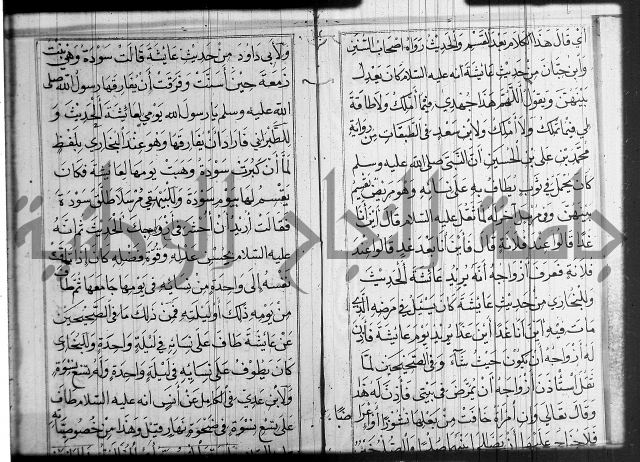 أي قال هذا الكلام بعد القسم والحديث رواه اصحاب السنن
وابن حبان من حديث عايشة انه عليه السلام كان يعدل
بينهن ويقول اللهم هذا جهدي فيما املك ولا طاقة
لي فيما تملك ولا املك ولابن سعد في الطبقات من رواية
محمد بن علي بن الحسين أن النبي صلى الله عليه وسلم
كان يحمل في ثوب يطاف به على نسائه وهو مريض يقسم
بينهن لما ثقل عليه السلام قال أين أنا
غدا قالوا عند فلانة قال فأين أنا بعد غد قالوا عند
فلانة فعرف أزواجه أنه يريد عائشة الحديث
وللبخاري من حديث عايشة كان يسئل في مرضه الذي
مات فيه أين انا غدا أين انا غدا يريد يوم عايشة فأذن
له أزواجه أن يكون حيث شاء وفي الصحيحين لما
ثقل استأذن ازواجه أن يمرض في بيتي فأذن له
وقال تعالى وان امرأة خافت من بعلها نشوزا او اعراضا
فلا جناح عليهما ان يصلحا بينهما صلحا والصلح خير
ولأبي داود من حديث عايشة قالت سودة وهي بنت
زمعة حين أسنت وفرقت أن يفارقها رسول الله صلى
الله عليه وسلم يا رسول الله يومي لعائشة الحديث و
للطبراني فاراد أن يفارقها وهو عند البخاري بلفظ
لما أن كبرت سودة وهبت يومها لعائشة فكان
يقسم لها بيوم سودة وللبيهقي مرسلا طلق سودة
فقالت أريد أن احشر في أزواجك الحديث ثم انه
عليه السلام بحسن عدله وقوة فضله كان إذا تاقت
نفسه إلى واحدة من نسائه في يومها جامعها ثم طاف
من يومه ذلك أو ليلته فمن ذلك ما في الصحيحين
عن عايشة طاف على نسائه في ليلة واحدة وللبخاري
كان يطوف على نسائه في ليلة واحدة وله تسع نسوة
ولابن عدي في الكامل عن أنس انه عليه السلام طاف
على تسع نسوة في ضحوة نهار قيل وهذا من خصوصياته
جامعة النجاح الوطنية